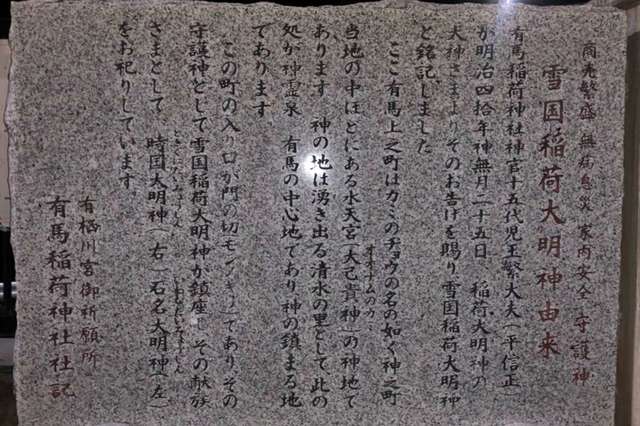 商売繁盛 無病息災 家内安全 守護神
雪国稲荷大明神由来
有馬稲荷神社神官十五代児玉繁大夫(平信正)
が明治四拾年神無月二十五日、稲荷大明神の
大神さまよりそのお告げを賜り雪国稲荷大明神
と銘記しました
ここ有馬上之町はカミのチョウの名の如く神之町
当地の中ほどにある水天宮(大己貴神)の神地で
オオナムのカ
あります 神の地は湧き出る清水の里として此の
処が神霊泉 有馬の中心地であり神の鎮まる地
であります
この町の入り口が門の切(モンノキリ)であり、その
守護神として雪国稲荷大明神が鎮座し その献族
さまとして、時国大明神(右)石名大明神(左)
をお祀りしています。
有栖川宮御祈願所
有馬稲荷神社社記